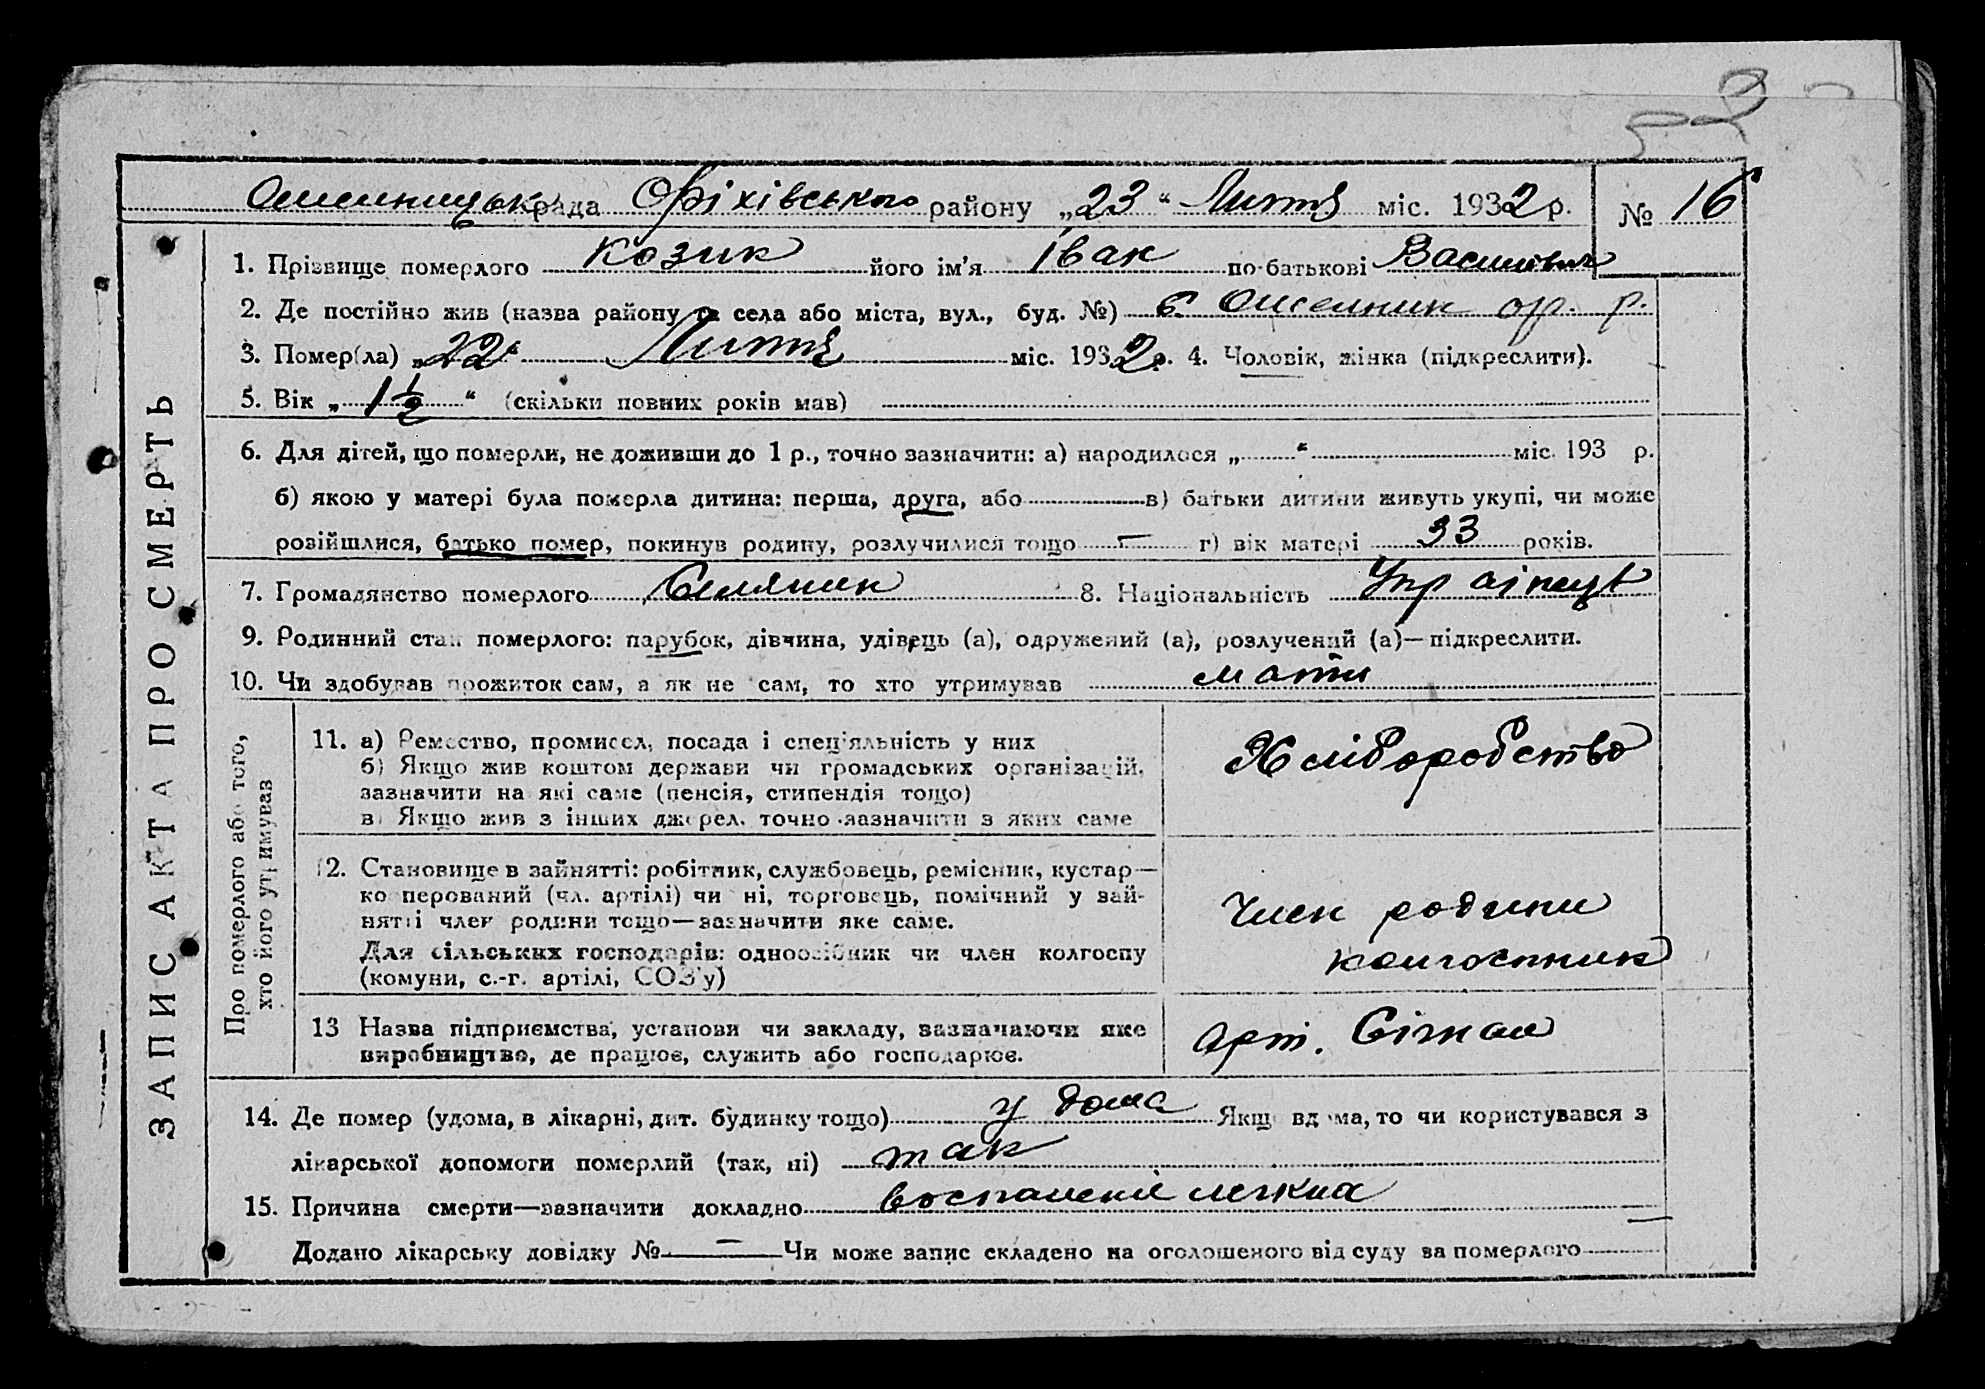 Омельницька рада Оріхівського району „23“ Липня міс. 1932 р. № 16
ЗАПИС АКТА ПРО СМЕРТЬ
1. Прізвище померлого Козик його ім'я Іван по-батькові Василович
2. Де постійно жив (назва району та села або міста, вул., буд. №) с. Омельник ор. р.
3. Помер(ла) „22“ Липня міс. 1932 р. 4. Чоловік, жінка (підкреслити).
5. Вік „1 1/2“ (скільки повних років мав)
6. Для дітей, що померли, не доживши до 1 р., точно зазначити: а) народилося „ “ міс. 193 р.
б) якою у матері була померла дитина: перша, друга, або в) батьки дитини живуть укупі, чи може
розійшлися, батько помер, покинув родину, розлучилися тощо — г) вік матері 33 років.
7. Громадянство померлого Селянин 8. Національність Українець
9. Родинний стан померлого: парубок, дівчина, удівець (а), одружений (а), розлучений (а)—підкреслити.
10. Чи здобував прожиток сам, а як не сам, то хто утримував мати
Про померлого або того,
хто його утримував
11. а) Ремество, промисел, посада і спец'яльність у них
б) Якщо жив коштом держави чи громадських організацій,
зазначити на які саме (пенсія, стипендія тощо)
в) Якщо жив з інших джерел, точно зазначити з яких саме
Хліборобство
12. Становище в зайнятті: робітник, службовець, ремісник, кустар—
кооперований (чл. артілі) чи ні, торговець, помічний у зай-
нятті член родини тощо—зазначити яке саме.
Для сільських господарів: одноосібник чи член колгоспу
(комуни, с.-г. артілі, СОЗ'у)
Член родини
колгоспник
13 Назва підприємства, установи чи закладу, зазначаючи яке
виробництво, де працює, служить або господарює.
Арт. Сігнал
14. Де помер (удома, в лікарні, дит. будинку тощо) у дома Якщо вдома, то чи користувався з
лікарської допомоги померлий (так, ні) так
15. Причина смерти—зазначити докладно воспаленіє легкиа
Додано лікарську довідку № — Чи може запис складено на оголошеного від суду за померлого —